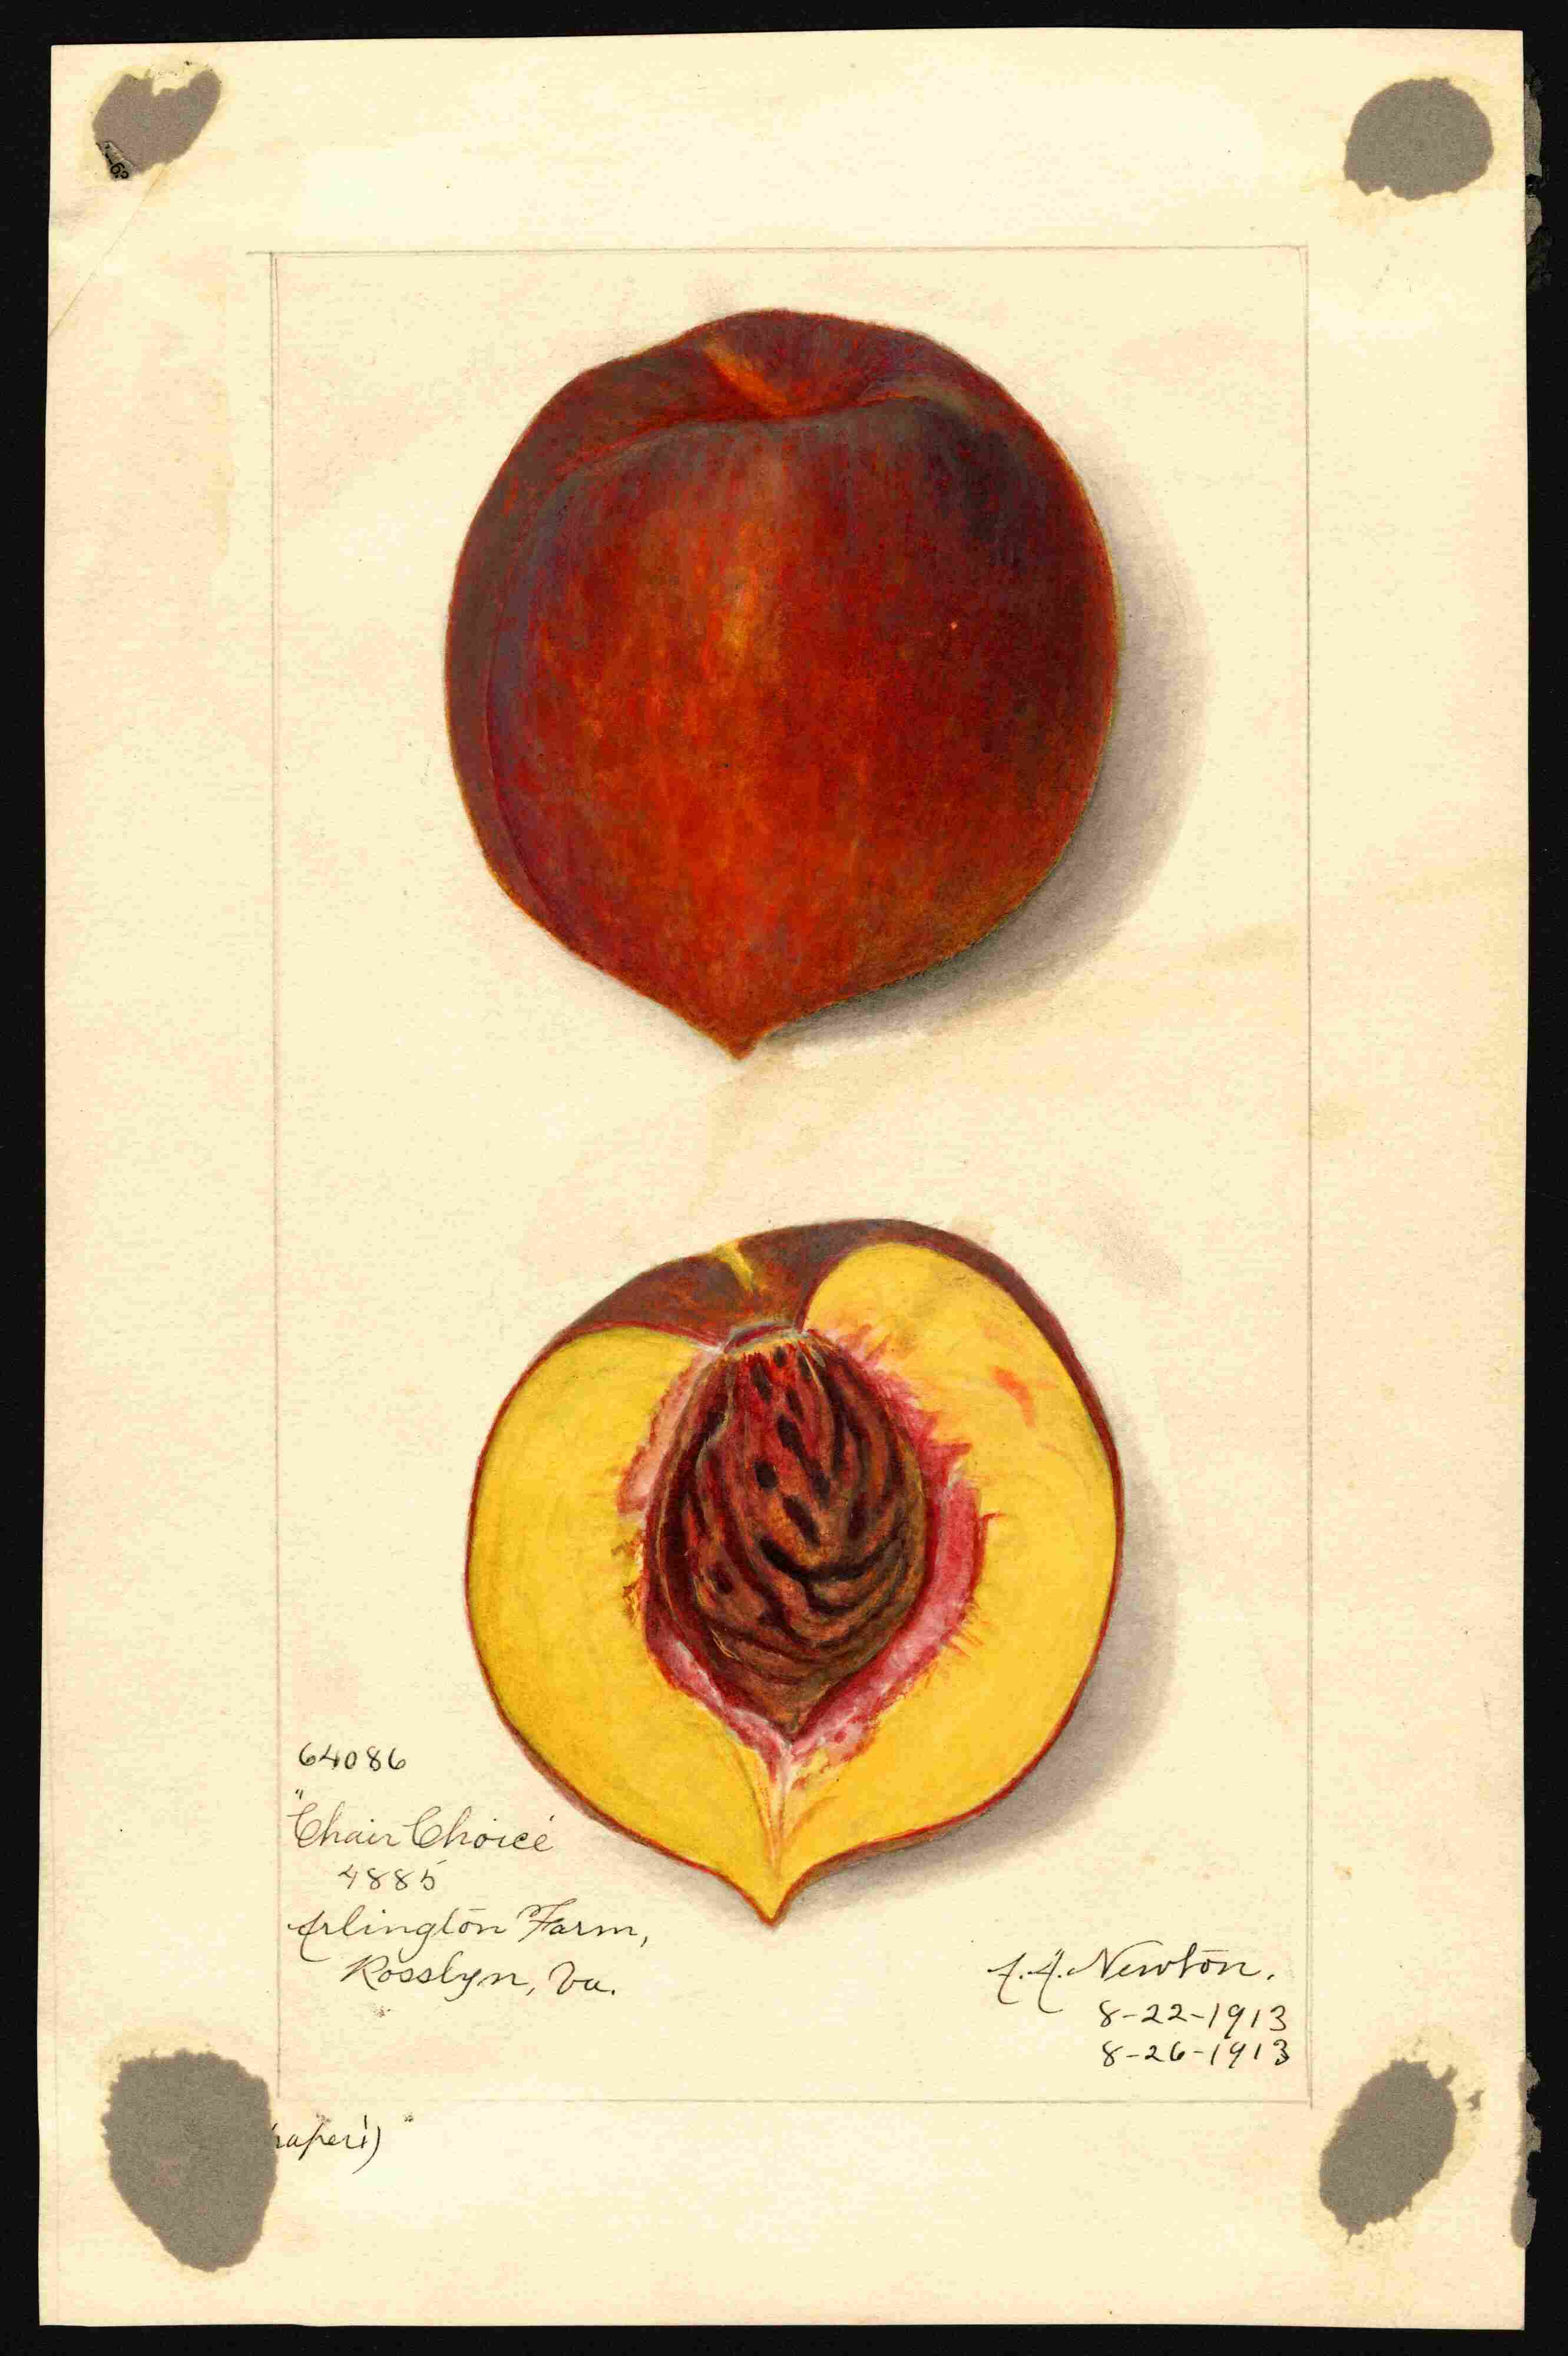 64086
"Chair Choice"
4885
Arlington Farm,
Rosslyn, Va.
A.A. Newton.
8-22-1913
8-26-1913